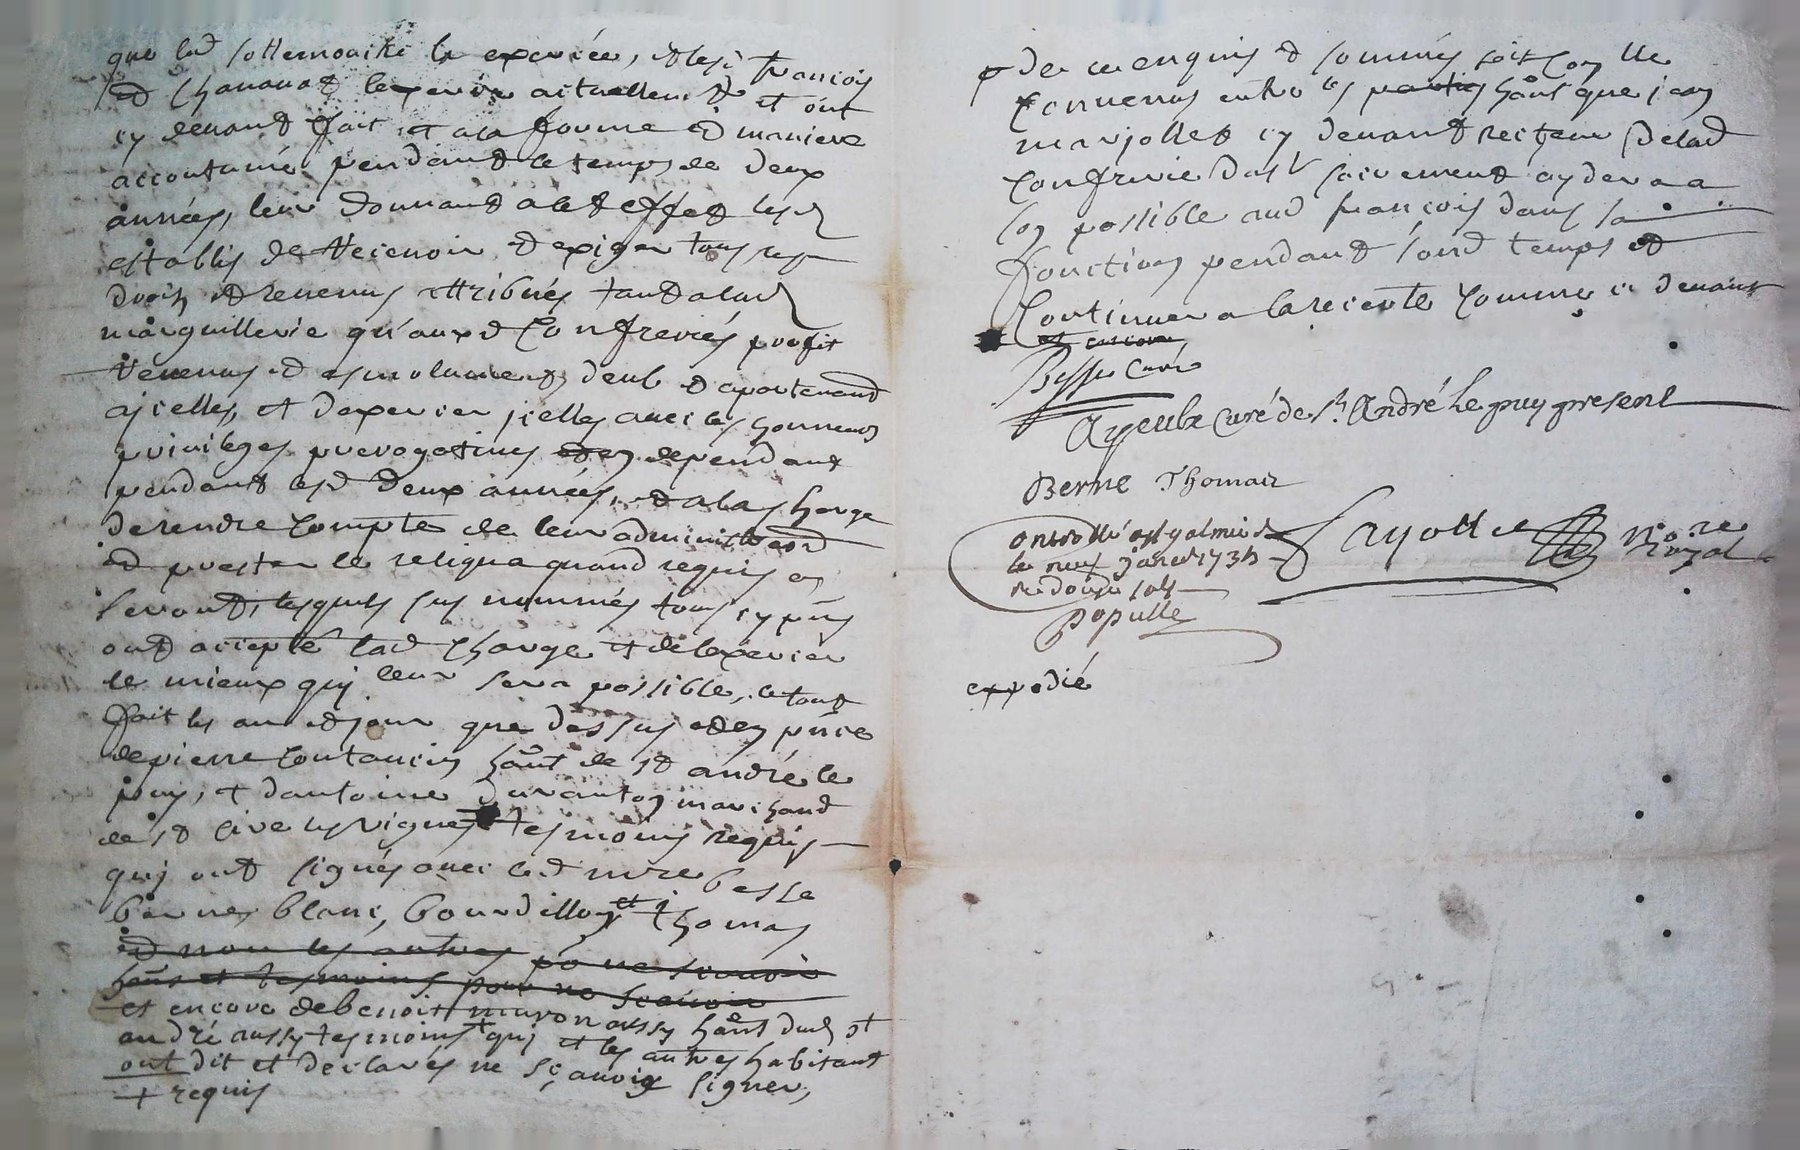 que lad sotternoitie la exercée, et lesd françois
et Chanavat lexercer actuellemt et ont
cy devant fait, et a la forme et maniere
accoutumé pendant le temps de deux
années, leur donnant a cet effet lesd
establis de recevoir et exiger tous les
droits et revenus attribués tant a lad
marguillerie qu'auxd Confreries profit
revenus et esmoluments deub et apartenand
a jcelles, et dexercer jcelles avec les honneurs
privileges prerogatives et en dependant
pendant lesd deux années, et a la charge
de rendre Compte de leur administraon
et prester le reliqua quand requis en
seront, lesquels sus nommés tous cy pnts
ont accepté lad Charge et de lexercer
le mieux quj leur sera possible, le tout
fait les an et jour que dessus et en pnce
de pierre Coutancin hant de st andré le
puy, et dantoine duranton marchand
de st Cire les vignes tesmoins requis
quj ont signés avec led mre besse
berne, blanc, bourdillon et thomas
et non les autres po ne scavoir
hans et tesmoins pour ne scavoir
et encore de benoit muron aussy hant dud st
andré aussy tesmoins + quj et les autres habitant
ont dit et declarés ne sçavoir signer,
+ requis
de ce enquis et sommés soit Con lle
Convenus entre les parties hants que jean
marjollet cy devant recteur de lad
Confrerie du st sacrement aydera a
son possible aud françois dans sa
fonction pendant sond temps et
Continuer a la recepte Comme cy devant
et encore
Besse Curé
Ayeulx Curé de st André le puy present
Berne Thomas
Controllé a st galmier
le neuf Janv 1734
re douze sols
populle
Fayolle No re
Royal
expedié